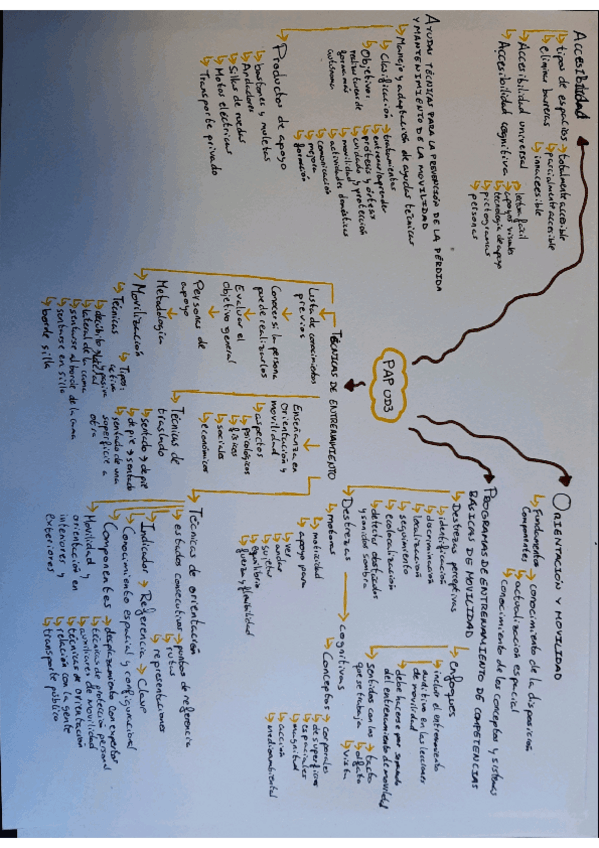 PAP UD3
ORIENTACIÓN Y MOVILIDAD
Fundamentos
Componentes
conocimiento de la disposición
actualización espacial
conocimiento de los conceptos y sistemas
PROGRAMAS DE ENTRENAMIENTO DE COMPETENCIAS
BÁSICAS DE MOVILIDAD
Destrezas perceptivas
identificación
discriminación
localización
seguimiento
ecolocalización
detectar obstáculos
y sonidos sombra
Enfoques
incluir el entrenamiento
auditivo en las lecciones
de movilidad
debe hacerse por separado
del entrenamiento de movilidad
sentidos con los
que se trabaja
tacto
olfato
vista
Destrezas
motoras
motricidad
apoyo para
ver
andar
sujetar
equilibrio
fuerza y flexibilidad
cognitivas
Conceptos
corporales
de superficies
espaciales
magnitud
acción
medioambiental
TÉCNICAS DE ENTRENAMIENTO
Lista de conocimientos
previos
Conocer si la persona
puede realizarlos
Evaluar el
objetivo general
Personas de
apoyo
Metodología
Movilización
Técnicas
Tipos:
activa
y pasiva
decúbito
lateral de la cama
sentarse al borde de la cama
sentarse en silla
borde silla
Enseñanza en
Orientación y
movilidad
aspectos
psicológicos
físicos
sociales
económicos
Técnicas de
traslado
sentado y de pie
de pie y sentado
sentado de una
superficie a
otra
Técnicas de orientación
estados consecutivos
puntos de referencia
rutas
representaciones
Indicador
Referencia
Clave
Conocimiento espacial y configuracional
Componentes
desplazamiento con experto
técnicas de protección personal
auxiliares de movilidad
técnicas de orientación
relación con la gente
transporte público
Movilidad y
orientación en
interiores y
exteriores
Accesibilidad
tipos de espacios
totalmente accesible
parcialmente accesible
inaccesible
elimina barreras
Accesibilidad universal
Accesibilidad cognitiva
lectura fácil
apoyos visuales
tecnología de apoyo
pictogramas
personas
AYUDAS TÉCNICAS PARA LA PREVENCIÓN DE LA PÉRDIDA
Y MANTENIMIENTO DE LA MOVILIDAD
Manejo y adaptación de ayudas técnicas
Clasificación
tratamientos
entrenar/aprender
prótesis y órtesis
cuidado y protección
movilidad
actividades domésticas
comunicación
mejora
formación
Objetivo:
Productos de apoyo
bastones y muletas
Andadores
Sillas de ruedas
Motos eléctricas
Transporte privado